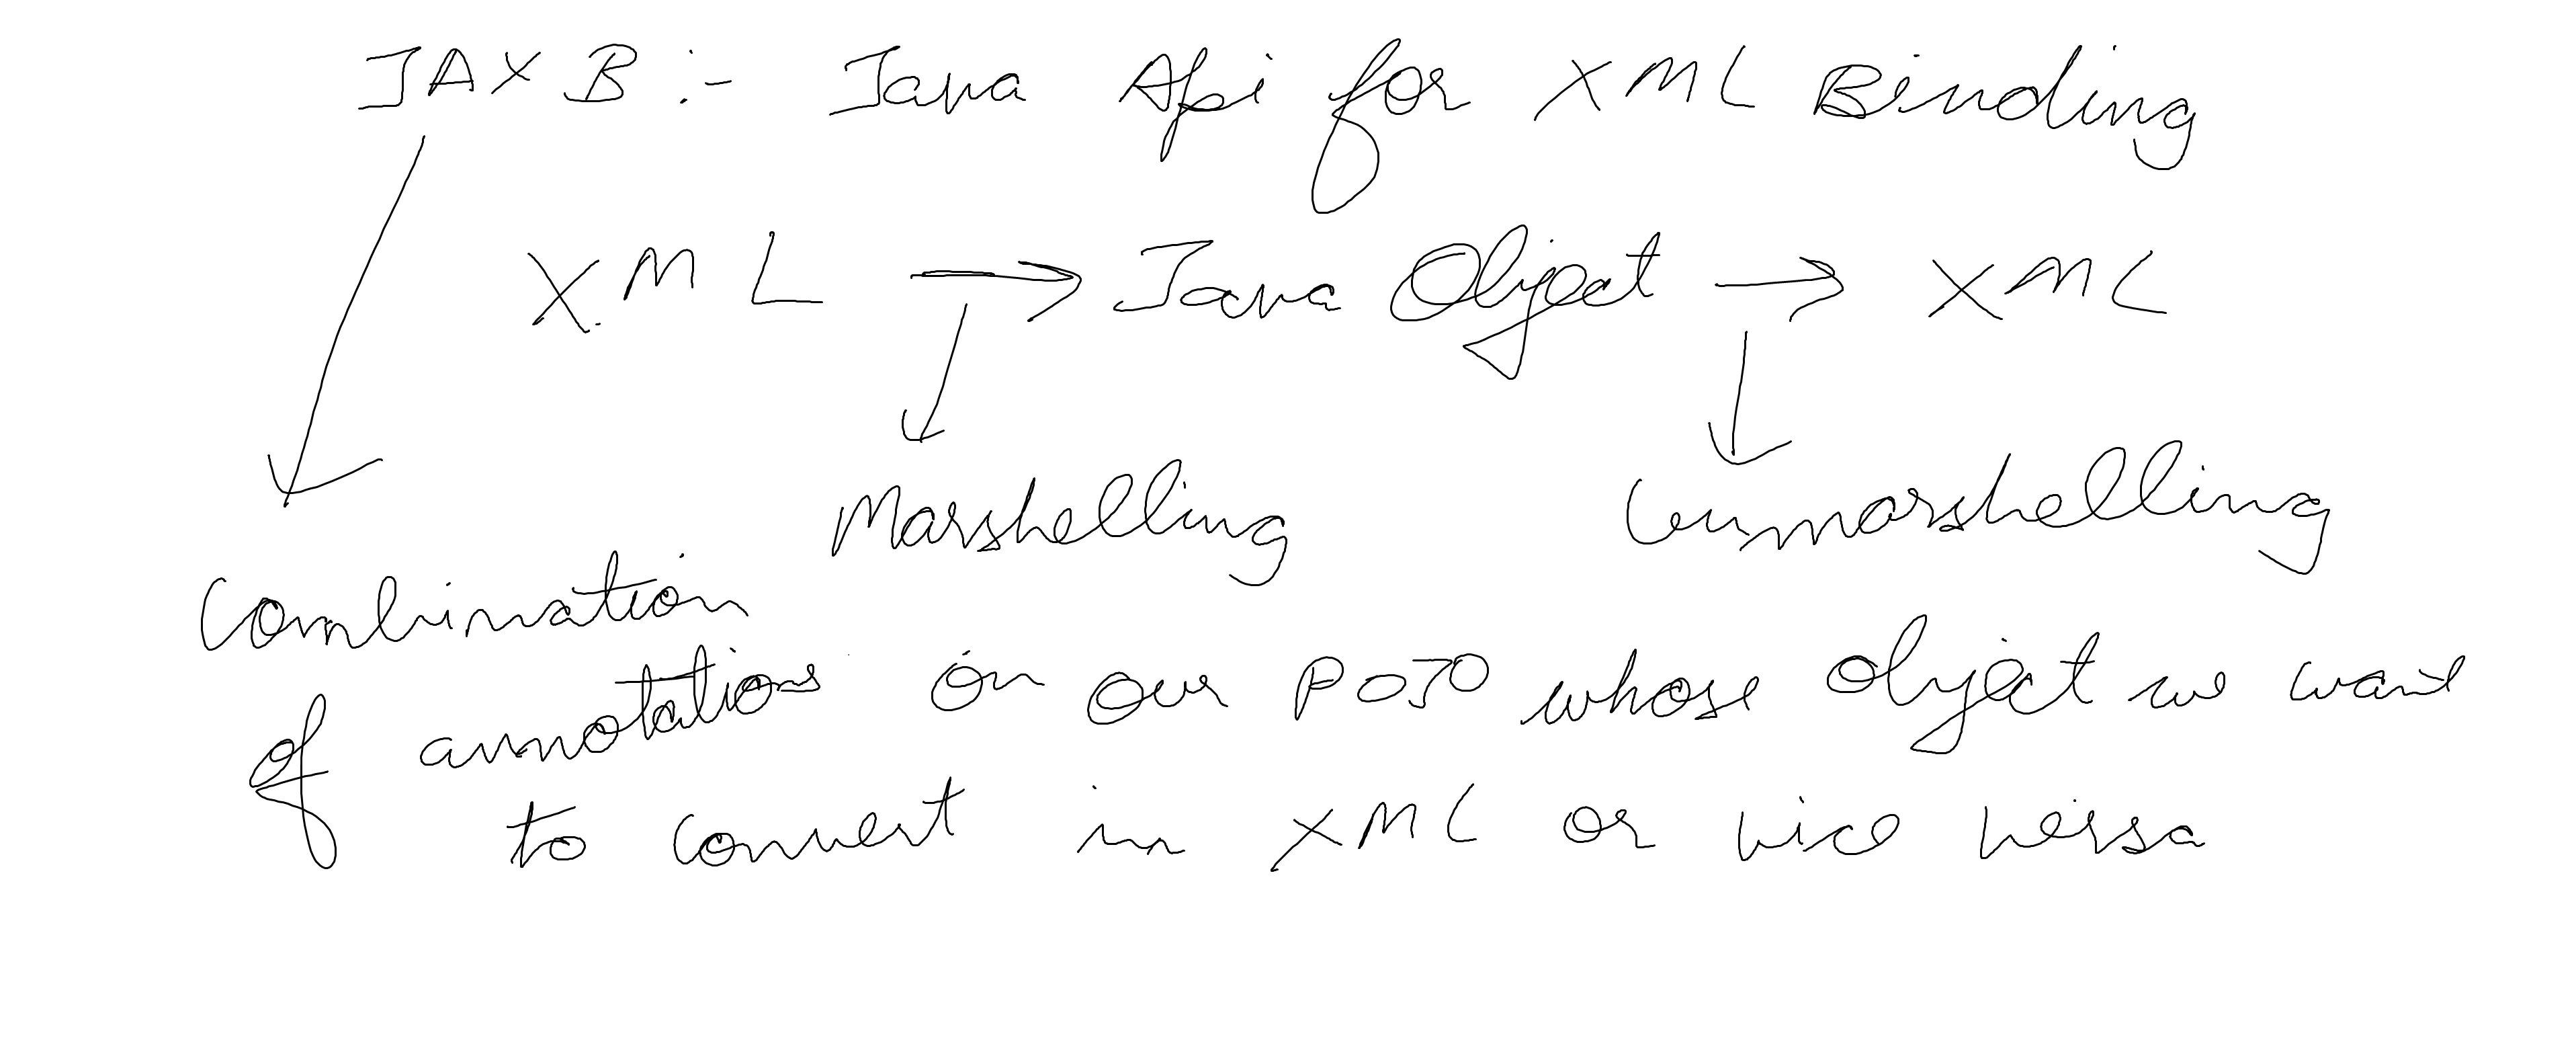 JAXB :- Java Api for XML Binding
XML → Java Object → XML
Marshelling Unmarshelling
Combination
of annotations on our POJO whose object we want
to convert in XML or vice versa